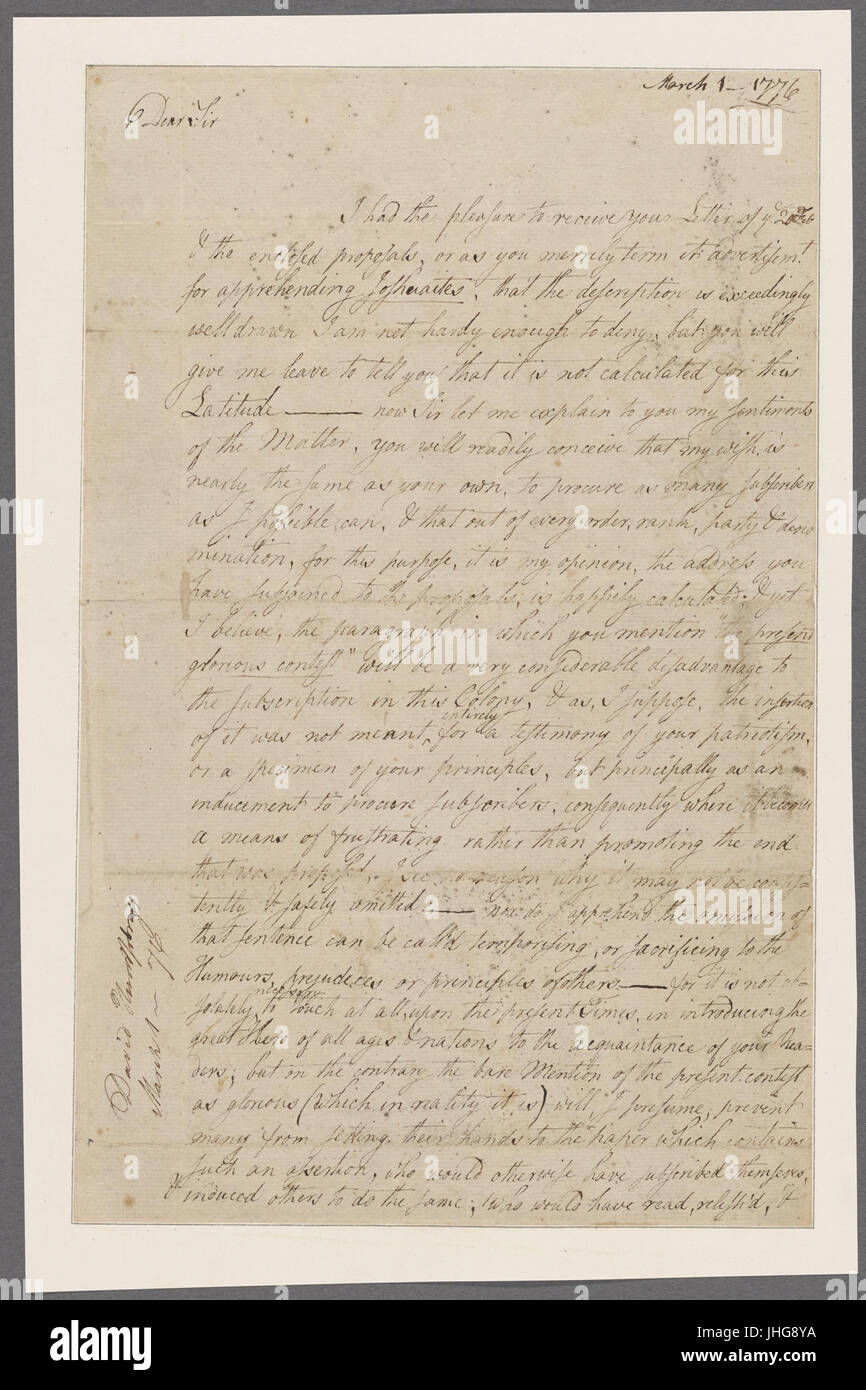 March 1 — 1776
Dear Sir
I had the pleasure to receive your Letter of ye 20 Feb
& the enclosed proposals, or as you merrily term it advertisemt.
for apprehending Joshuaites, that the description is exceedingly
well drawn I am not hardy enough to deny, but you will
give me leave to tell you that it is not calculated for this
Latitude —— now Sir let me explain to you my sentiments
of the Matter, you will readily conceive that my wish is
nearly the same as your own, to procure as many subscribers
as I possible can, & that out of every order, rank, party & deno
mination, for this purpose, it is my opinion, the address you
have subjoined to the proposals, is happily calculated, & yet
I believe, the paragraph in which you mention "the present
glorious contest" will be a very considerable disadvantage to
the subscription in this Colony, & as, I suppose, the insertion
of it was not meant, entirely for a testimony of your patriotism,
or a specimen of your principles, but principally as an
inducement to procure subscribers; consequently where it becomes
a means of frustrating rather than promoting the end
that was proposed, I see no reason why it may not be consis-
tently & safely omitted —— nor do I apprehend the omission of
that sentence can be call'd temporising, or sacrificing to the
Humours, prejudices or principles of others — for it is not ab-
solutely necessary to touch at all, upon the present Times, in introducing the
great Hero of all ages & nations to the acquaintance of your Rea-
ders; but on the contrary the bare Mention of the present contest
as glorious (which in reality it is) will, I presume, prevent
many from setting their hands to the paper which contains
such an assertion, who would otherwise have subscribed themselves,
& induced others to do the same; who would have read, relish'd, &
David
March 1 — 76
alamy
alamy stock photo
JHG8YA
www.alamy.com